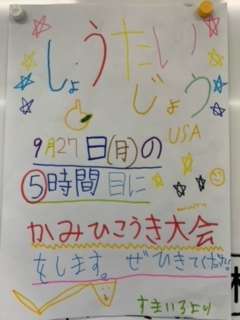 しょうたい
じょう
USA
9月27日(月)の
⑤時間目に
かみひこうき大会
をします。ぜひきてください
すまいるより